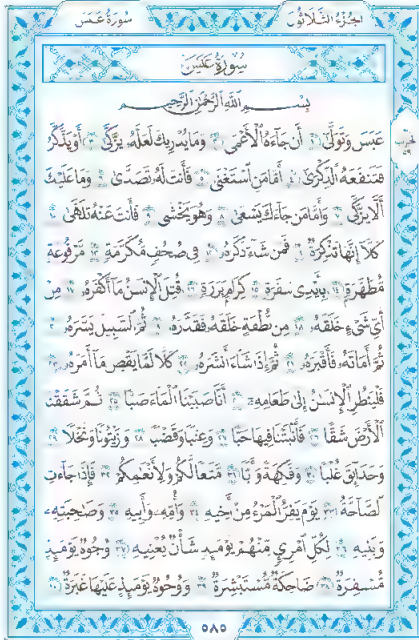 سُورَةُ عَبَسَ
الجُزْءُ الثَّلَاثُونَ
سُورَةُ عَبَسَ
بِسْمِ اللَّهِ الرَّحْمَٰنِ الرَّحِيمِ
حزب
عَبَسَ وَتَوَلَّىٰٓ ١ أَن جَآءَهُ ٱلْأَعْمَىٰ ٢ وَمَا يُدْرِيكَ لَعَلَّهُۥ يَزَّكَّىٰٓ ٣ أَوْ يَذَّكَّرُ
فَتَنفَعَهُ ٱلذِّكْرَىٰٓ ٤ أَمَّا مَنِ ٱسْتَغْنَىٰ ٥ فَأَنتَ لَهُۥ تَصَدَّىٰ ٦ وَمَا عَلَيْكَ
أَلَّا يَزَّكَّىٰ ٧ وَأَمَّا مَن جَآءَكَ يَسْعَىٰ ٨ وَهُوَ يَخْشَىٰ ٩ فَأَنتَ عَنْهُ تَلَهَّىٰ ١٠
كَلَّآ إِنَّهَا تَذْكِرَةٌ ١١ فَمَن شَآءَ ذَكَرَهُۥ ١٢ فِى صُحُفٍ مُّكَرَّمَةٍ ١٣ مَّرْفُوعَةٍ
مُّطَهَّرَةٍۭ ١٤ بِأَيْدِى سَفَرَةٍ ١٥ كِرَامٍۭ بَرَرَةٍ ١٦ قُتِلَ ٱلْإِنسَٰنُ مَآ أَكْفَرَهُۥ ١٧ مِنْ
أَىِّ شَىْءٍ خَلَقَهُۥ ١٨ مِن نُّطْفَةٍ خَلَقَهُۥ فَقَدَّرَهُۥ ١٩ ثُمَّ ٱلسَّبِيلَ يَسَّرَهُۥ ٢٠
ثُمَّ أَمَاتَهُۥ فَأَقْبَرَهُۥ ٢١ ثُمَّ إِذَا شَآءَ أَنشَرَهُۥ ٢٢ كَلَّا لَمَّا يَقْضِ مَآ أَمَرَهُۥ ٢٣
فَلْيَنظُرِ ٱلْإِنسَٰنُ إِلَىٰ طَعَامِهِۦٓ ٢٤ أَنَّا صَبَبْنَا ٱلْمَآءَ صَبًّا ٢٥ ثُمَّ شَقَقْنَا
ٱلْأَرْضَ شَقًّا ٢٦ فَأَنۢبَتْنَا فِيهَا حَبًّا ٢٧ وَعِنَبًا وَقَضْبًا ٢٨ وَزَيْتُونًا وَنَخْلًا ٢٩
وَحَدَآئِقَ غُلْبًا ٣٠ وَفَٰكِهَةً وَأَبًّا ٣١ مَّتَٰعًا لَّكُمْ وَلِأَنْعَٰمِكُمْ ٣٢ فَإِذَا جَآءَتِ
ٱلصَّآخَّةُ ٣٣ يَوْمَ يَفِرُّ ٱلْمَرْءُ مِنْ أَخِيهِ ٣٤ وَأُمِّهِۦ وَأَبِيهِ ٣٥ وَصَٰحِبَتِهِۦ
وَبَنِيهِ ٣٦ لِكُلِّ ٱمْرِئٍ مِّنْهُمْ يَوْمَئِذٍ شَأْنٌ يُغْنِيهِ ٣٧ وُجُوهٌ يَوْمَئِذٍ
مُّسْفِرَةٌ ٣٨ ضَاحِكَةٌ مُّسْتَبْشِرَةٌ ٣٩ وَوُجُوهٌ يَوْمَئِذٍ عَلَيْهَا غَبَرَةٌ ٤٠
٥٨٥